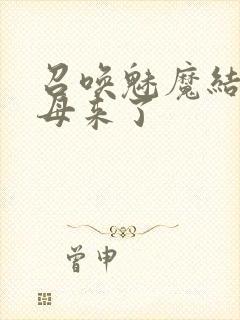 召唤魅魔结
母来了
曾申